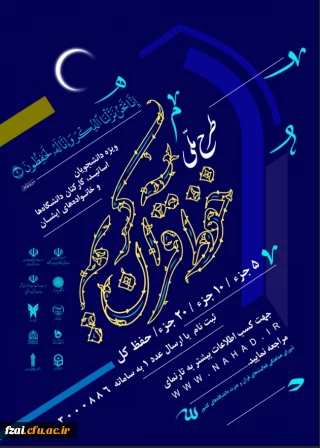 إِنَّا نَحْنُ نَزَّلْنَا الذِّكْرَ وَإِنَّا لَهُ لَحَافِظُونَ
طرح ملّی
حفظ قرآن کریم
ویژه دانشجویان
اساتید، کارکنان دانشگاه‌ها
و خانواده‌های ایشان
۵ جزء / ۱۰ جزء / ۲۰ جزء / حفظ کل
ثبت نام با ارسال عدد ۱ به سامانه ۲۰۰۰۸۸۶
جهت کسب اطلاعات بیشتر به تارنمای
WWW.NAHAD.IR
مراجعه نمایید
fzai.cfu.ac.ir